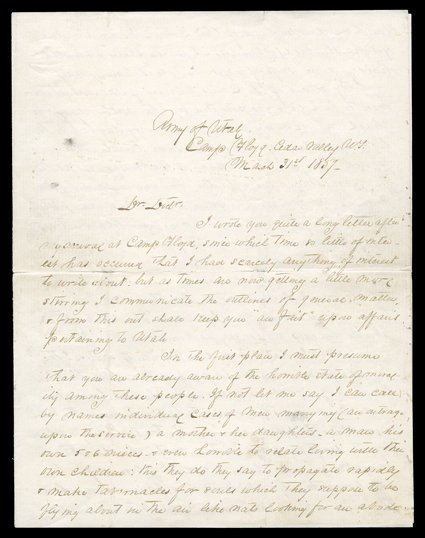 Army of Utah,
Camp Floyd, Cedar Valley, U.T.
March 31st 1859_
I wrote you quite a long letter after
my arrival at Camp Floyd, since which time so little of inter-
est has occurred that I had scarcely anything of interest
to write about: but as times are now getting a little more
stirring I communicate the outlines of general matters
& from this out shall keep you "au fait" upon affairs
pertaining to Utah.
In the first place I must presume
that you are already aware of the horrible state of moral
ity among these people. If not let me say I can call
by names individual cases of men marrying (an outrage
upon the service) a mother & her daughters_ a man his
own 5 & 6 nieces_ & even horrible to relate living with their
own children: this they do they say to propagate rapidly
& make tabernacles for souls which they suppose to be
flying about in the air like looking for an abode